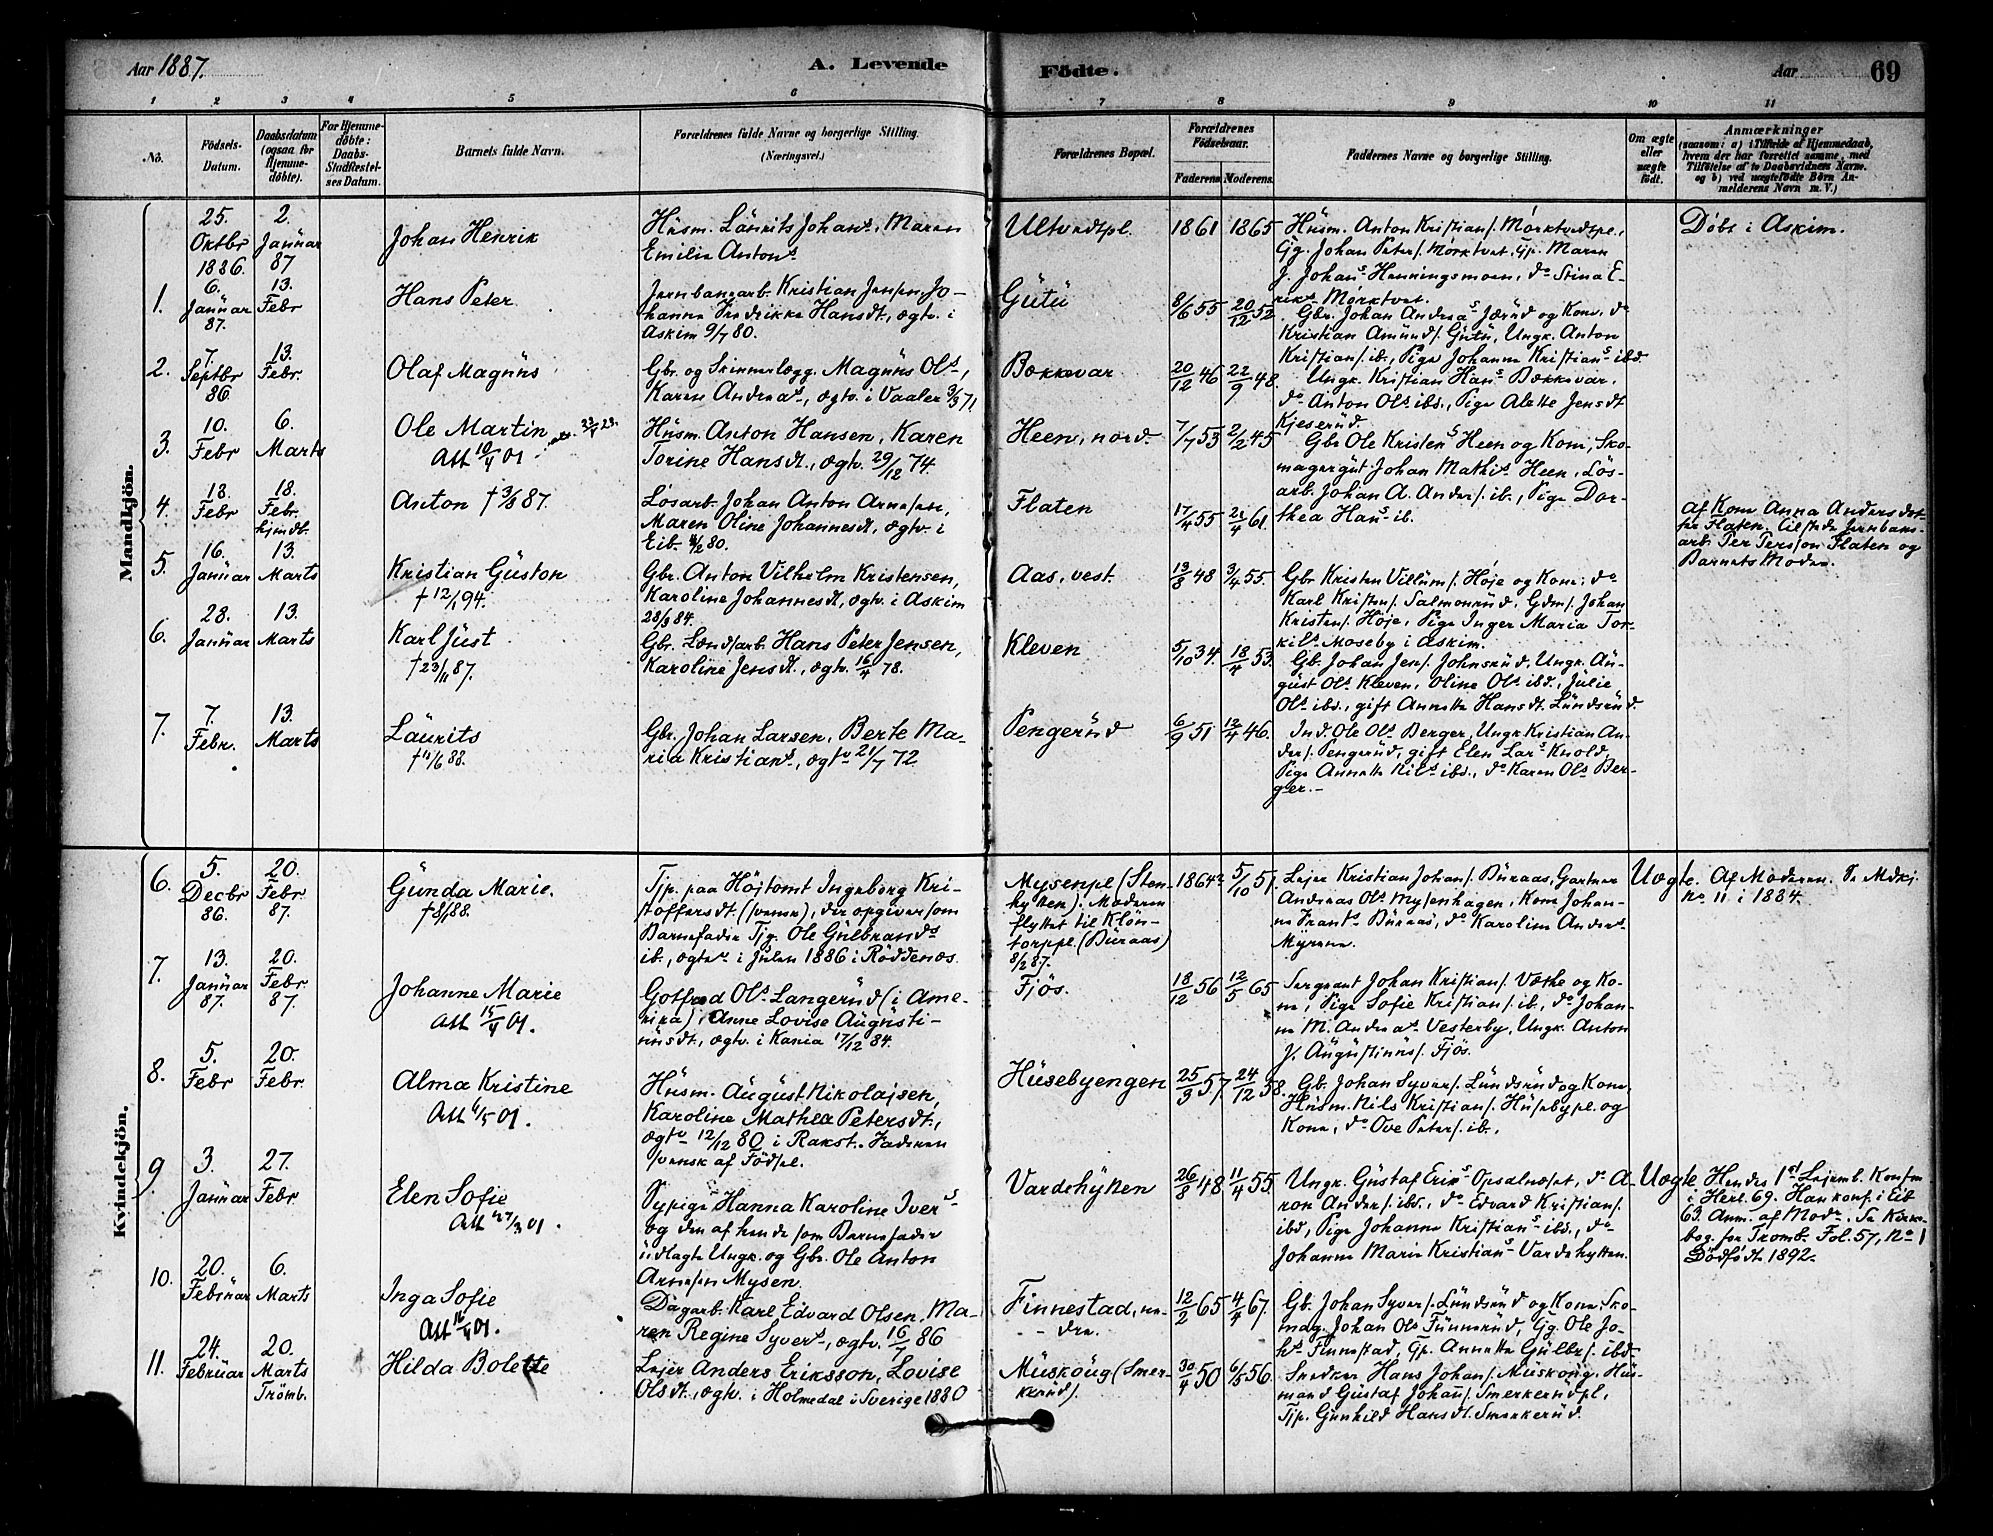 Aar 1887.
A. Levende Födte.
Aar
69
1 2 3 4 5 6 7 8 9 10 11
No.
Födsels-Datum.
Daabsdatum (ogsaa for Hjemme-döbte).
For Hjemme-döbte: Daabs-Stadfæstel-ses Datum.
Barnets fulde Navn.
Forældrenes fulde Navne og borgerlige Stilling.
(Næringsvei.)
Forældrenes Bopæl.
Forældrenes Födselsaar.
Faderens. Moderens.
Faddernes Navne og borgerlige Stilling.
Om ægte eller uægte født.
Anmærkninger
(saasom: a) i Tilfælde af Hjemmedaab, hvem der har forrettet samme, med Tilföielse af to Daabsvidners Navne. og b) ved uægtefödte Börn An-melderens Navn m. V.)
Mandkjön.
25. Oktbr 1886.
2. Januar 87
Johan Henrik
Husm. Laurits Johans., Maren
Emilie Antons.
Ultvedtpl.
1861 1865
Husm. Anton Kristians. Mørktvedtpl.,
Gg. Johan Peters. Mørktvet, Gp. Maren
J. Johans. Henningsmoen, do Stina E-
riks. Mørktvet.
Døbt i Askim.
1.
6. Januar 87.
13. Febr
Hans Peter
Jernbanearb. Kristian Jensen, Jo-
hanne Fredrikke Hansdt., ægtv. i
Askim 9/7 80.
Gutu
8/6 55 20/12 52
Gbr. Johan Andreas. Jærud og Kone, do
Kristian Amunds. Gutu, Ungk. Anton
Kristians. ib., Pige Johanne Kristians. ibd.
2.
7. Septbr 86.
13. Febr.
Olaf Magnus
Gbr. og Skinnerlægg. Magnus Ols.,
Karen Andreas., ægtv. i Vaaler 3/3 71
Bækkevar
20/12 46 22/9 48.
Ungk. Kristian Hans. Bækkevar,
do Anton Ols. ibd., Pige Alette Jensdt
Kjeserud.
3.
10. Febr
6. Marts
Ole Martin
Att 10/4 01.
Husm. Anton Hansen, Karen
Torine Hansdt., ægtv. 29/12 74.
Heen, nord
7/7 53 2/2 45
Gbr. Ole Kristens. Heen og Kone, Sko-
magergut Johan Mathis. Heen, Løs-
arb. Johan A. Anders. ib., Pige Dor-
thea Hans. ib.
4.
13. Febr
18. Febr. hjmdt.
Anton † 3/3 87.
Løsarb. Johan Anton Arnesen,
Maren Oline Johannesdt., ægtv. i
Eib. 80.
Flaten
17/4 55 21/4 61.
af Kone Anna Andersdat-
ter Flaten. tilstede Jernbane-
arb. Per Persson Flaten og
Barnets Moder.
5.
16. Januar
13. Marts
Kristian Guston
† 12/1 94.
Gbr. Anton Vilhelm Kristensen,
Karoline Johannesdt., ægtv. i Askim
28/3 84.
Aas, vest.
13/8 48 3/4 55.
Gbr. Kristen Villums. Høje og Kone, do
Karl Kristens. Salmonrud, Gdms. Johan
Kristens. Höje, Pige Inger Maria Tor-
kils. Moseby i Askim.
6.
28. Januar
13. Marts
Karl Just
† 23/11 87.
Gbr. Landsarb. Hans Peter Jensen,
Karoline Jensdt., ægtv. 16/4 78.
Kleven
5/10 34. 18/4 53.
Gb. Johan Jens. Johnsrud, Ungk. Au-
gust Ols. Kleven, Oline Ols. ibd., Julie
Ols. ibd., gift Annette Hansdt. Lundsrud
7.
7. Febr.
13. Marts
Laurits
† 11/6 88.
Gbr. Johan Larsen, Berte Ma-
ria Kristians., ægtv. 21/7 72
Pengerud
6/9 51 12/4 46.
Ind. Ole Ols. Berger, Ungk Kristian An-
ders. Pengerud, gift Elen Lars. Knold,
Pige Annette Nils. ibd., do Karen Ols. Ber-
ger.-
Kvindekjön.
6.
5. Decbr 86.
20. Febr 87.
Gunda Marie.
† 8/1 88.
Tjp. paa Höjtomt Ingeborg Kri-
stoffersdt. (svensk), der opgiver som
Barnefader Tjg. Ole Gulbrands.
ib., ægtev. i Julen 1886 i Röddenæs.
Mysenpl (Sten-
hytten). Moderen
flyttet til Kløn-
torppl. (Buraas)
8/2 87.
1864? 5/10 51.
Lejer Kristian Johans. Buraas, Gartner
Andreas Ols. Mysenhagen, Kone Johan-
ne Frants. Buraas, do Karoline Anders.
Myrene.
Uægte.
Af Moderen. Se Mdkj.
No 11 i 1884.
7.
13. Januar 87.
20. Febr 87.
Johanne Marie
Att 15/4 01.
Gotfred Ols. Langerud (i Ame-
rika), Anne Lovise Augusti-
nusdt., ægtv. i Kania 17/12 84.
Fjös.
18/12 56 12/5 65
Sergeant Johan Kristians. Vethe og Ko-
ne, Pige Sofie Kristians. ib., do Johan-
ne M. Andreas. Vesterby, Ungk. Anton
J. Augustinus. Fjös.
8.
5. Febr
20. Febr.
Alma Kristine
Att 6/5 01.
Husm. August Nikolajsen,
Karoline Mathea Petersdt.,
ægtv. 12/12 80 i Rakst. Faderen
svensk af Födsel.
Husebyengen
25/3 57 24/12 58.
Gb. Johan Syvers. Lundsrud og Kone,
Husm. Nils Kristians. Husebypl. og
Kone, do Ove Peters. ib.
9
3. Januar
27. Febr
Elen Sofie
Att 27/3 01.
Sypige Hanna Karoline Ivers.
og den af hende som Barnefader
udlagte Ungk. og Gbr. Ole Anton
Arnesen Mysen.
Vardehytten
26/8 48 11/4 55
Ungk. Gustaf Eriks. Opsalnæset, do A-
ron Anders. ibd., do Edvard Kristians.
ibd, Pige Johanne Kristians. ibd., do
Johanne Marie Kristians. Vardehytten.
Uægte
Hendes 1ste Lejerm. Konfm
i Herl. 69. Han konf. i Eib
63. Anm. af Modr. Se Kirke-
bog for Trømb. Fol. 57, No 1
Dödfödte 1892.
10.
20. Februar
6. Marts
Inga Sofie
Att 16/4 01.
Dagarb. Karl Edvard Olsen, Ma-
ren Regine Syvers., ægtv. 16/7 86
Finnestad, ne-
dre.
12/2 65 4/4 67.
Gb. Johan Syvers. Lundsrud og Kone, Sko-
mag. Johan Ols. Funnerud, Gg. Ole Jo-
hs. Finnestad, Gp. Annette Gulbrs. ibd
11.
24. Februar
20. Marts Trömb.
Hilda Bolette
Lejer Anders Eriksson, Lovise
Olsdt., ægtv. i Holmedal i Sverige 1880
Muskoug (Smer-
kerud).
30/4 50 6/5 56.
Snedker Hans Johans. Muskoug, Hus-
mand Gustaf Johans. Smerkerudpl.,
Tjp. Gunhild Hansdt. Smerkerud.